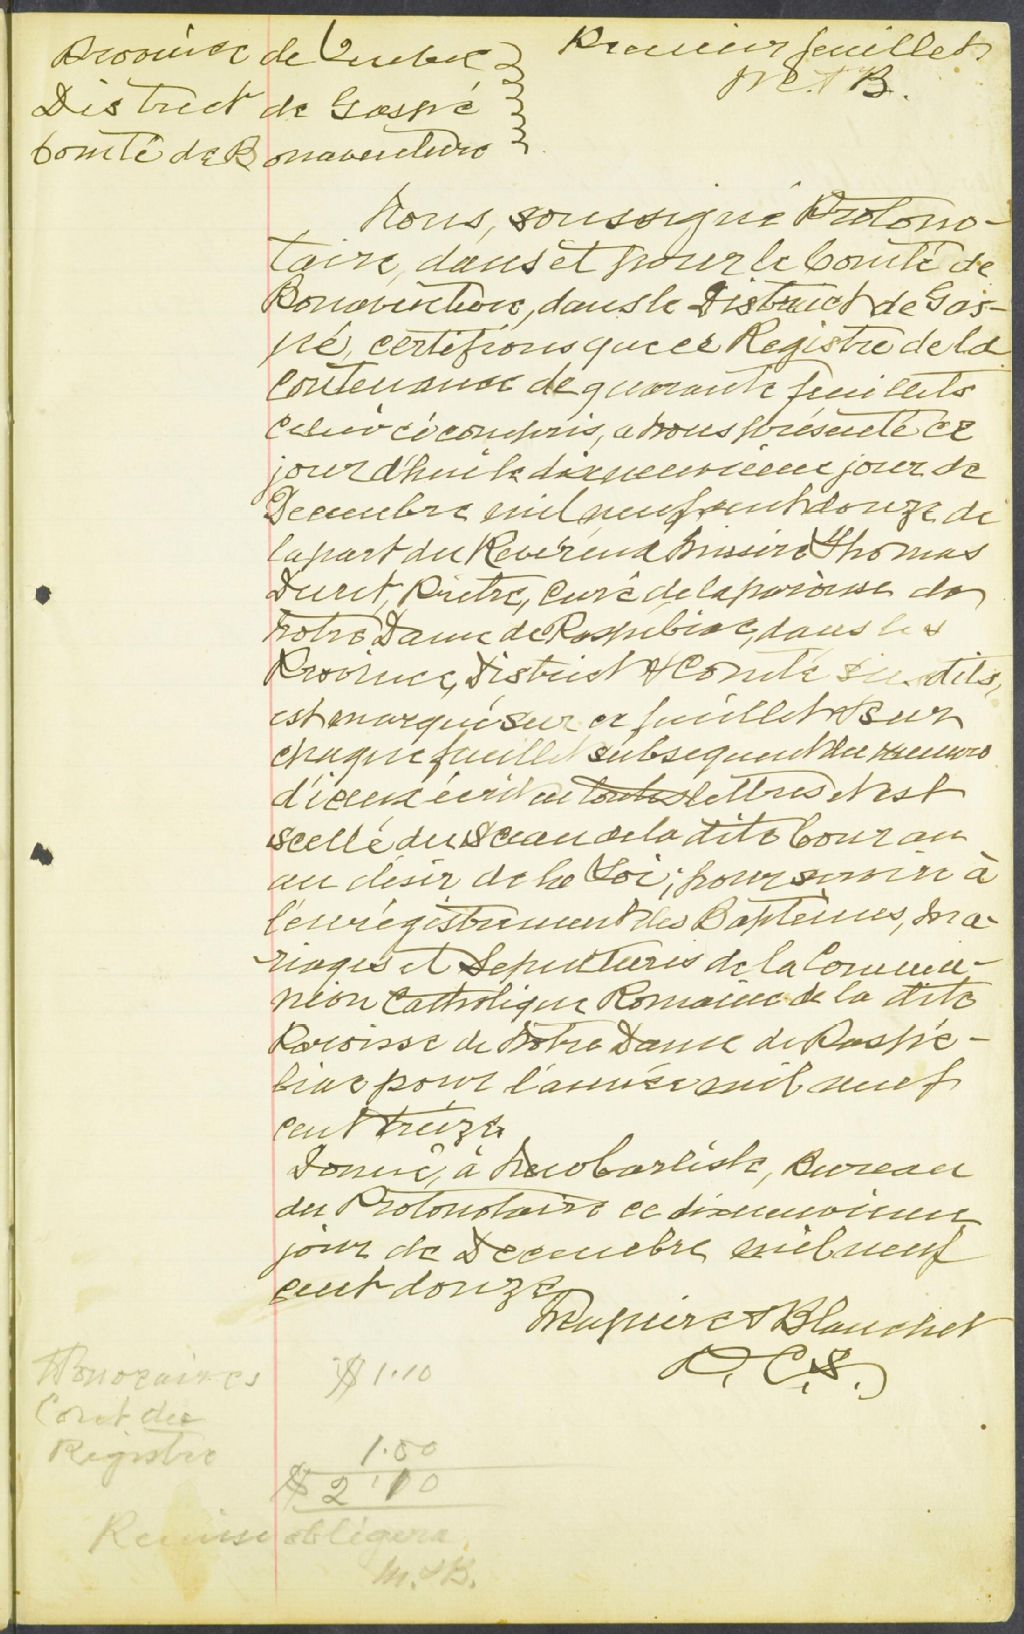 Province de Quebec
District de Gaspé
Comté de Bonaventure
Premier feuillet
M & B.
Nous, soussigné Protono-
taire, dans et pour le Comté de
Bonaventure, dans le District de Gas-
pé, certifions que ce Registre de la
Contenance de quarante feuillets
celui ci compris, a nous présenté ce
jour d'hui le dixneuvieme jour de
Decembre mil neuf cent douze de
la part du Révérend Messire Thomas
Duret, Prêtre, Curé de la paroisse de
Notre Dame de Paspébiac, dans les
Province, District & Comté susdits,
est marqué sur ce feuillet & sur
chaque feuillet subsequent du numero
d'iceux écrit en toutes lettres et est
scellé du Sceau de la dite Cour au
au désir de la Loi; pour servir à
l'enrégistrement des Baptêmes, Ma-
riages et Sepultures de la Commu-
nion Catholique Romaine de la dite
Paroisse de Notre Dame de Paspé-
biac pour l'année mil neuf
cent treize
Donné, à New Carlisle, Bureau
du Protonotaire ce dixneuvieme
jour de Decembre mil neuf
cent douze
Maguire & Blanchet
P. C. S.
Honoraires $ 1.10
Cout du
Registre 1.00
$ 2.10
Remise obligera
M. & B.